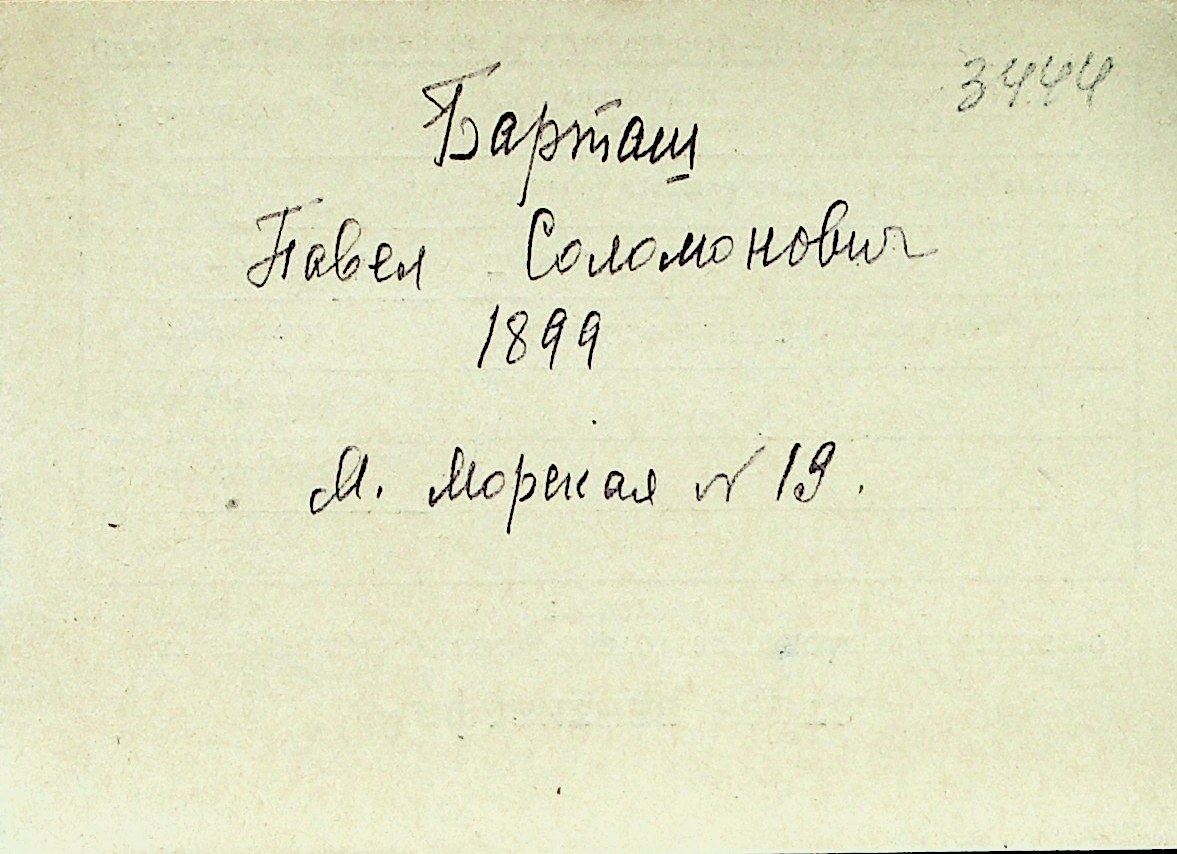 3444
Барташ
Павел Соломонович
1899
М. Морская № 19.